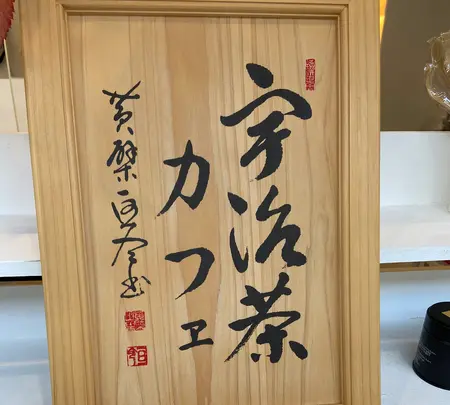 宇治茶
カフヱ
黄檗